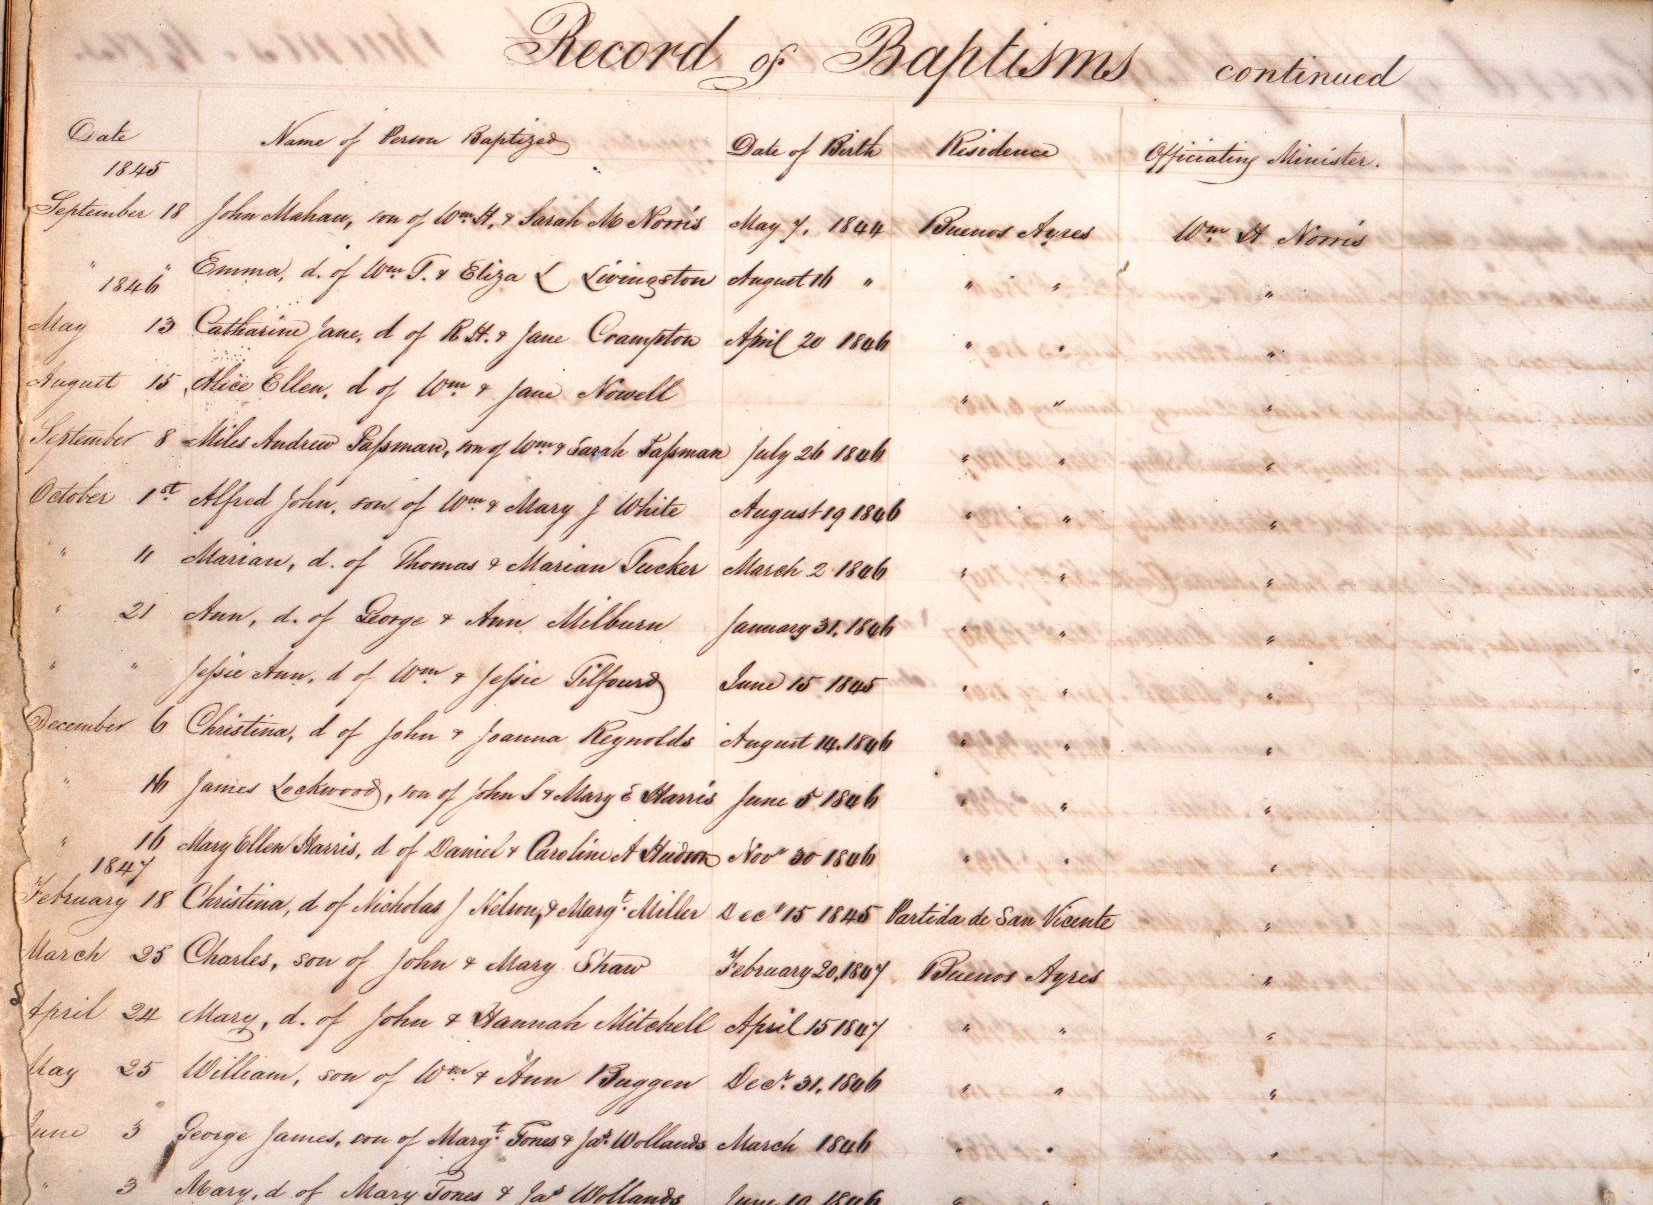 Record of Baptisms continued
Date Name of Person Baptized Date of Birth Residence Officiating Minister.
1845
September 18 John Mahan, son of Wm. H. & Sarah M Norris May 7, 1844 Buenos Ayres Wm. H Norris
" " Emma, d. of Wm T. & Eliza L Livingston August 16 " " " "
1846
May 13 Catharine Jane, d of R H. & Jane Crampton April 20 1846 " " "
August 15 Alice Ellen, d of Wm. & Jane Nowell " " "
September 8 Miles Andrew Paſsman, son of Wm. & Sarah Paſsman July 26 1846 " " "
October 1st. Alfred John, son of Wm. & Mary J White August 19 1846 " " "
" 11 Marian, d. of Thomas & Marian Tucker March 2 1846 " " "
" 21 Ann, d. of George & Ann Milburn January 31, 1846 " " "
" " Jeſsie Ann, d of Wm. & Jeſsie Tilfourd June 15 1845 " " "
December 6 Christina, d of John & Joanna Reynolds August 14, 1846 " " "
" 16 James Lockwood, son of John S & Mary E Harris June 5 1846 " " "
" 16 Mary Ellen Harris, d of Daniel & Caroline A Hudson Novr 30 1846 " " "
1847
February 18 Christina, d of Nicholas J Nelson, & Margt. Miller Decr 15 1845 Partida de San Vicente "
March 25 Charles, son of John & Mary Shaw February 20, 1847 Buenos Ayres "
April 24 Mary, d. of John & Hannah Mitchell April 15 1847 " " "
May 25 William, son of Wm. & Ann Buggen Decr. 31, 1846 " " "
June 3 George James, son of Margt. Jones & Jas. Wollands March 1846 " " "
" 3 Mary, d of Mary Jones & Jas Wollands June 10 1846 " " "